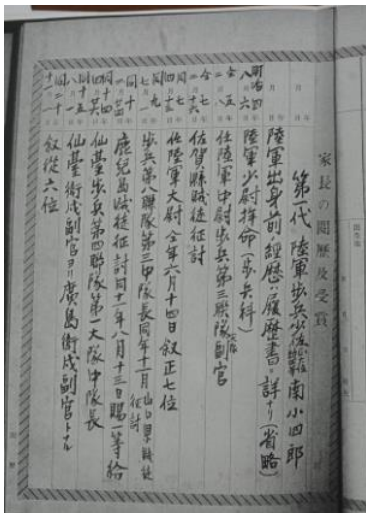 家長の閲歴及受賞
第一代 陸軍歩兵少佐 南小四郎
陸軍出身前ノ經歴ハ履歴書ニ詳ナリ(省略)
明治四 八 六 陸軍少尉拝命(歩兵科)
任陸軍中尉歩兵第三聯隊大隊副官
仝七 二 佐賀縣賊徒征討
同七 四 任陸軍大尉 仝年六月十四日 叙正七位
歩兵第八聯隊第三中隊長同年十一月 山口県賊徒征討
同十 二 鹿兒島賊徒征討同十一年八月十三日賜一等給
同十四 仙臺歩兵第四聯隊第一大隊中隊長
同十五 仙臺衛戍副官ヨリ廣島衛戍副官トナル
同二十 叙從六位